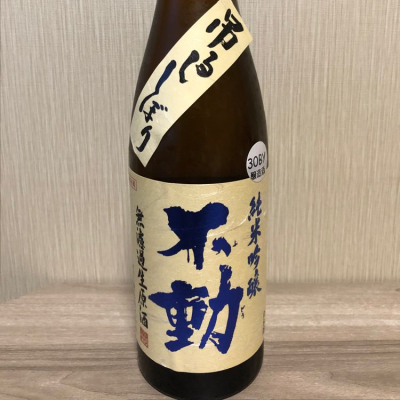 吊るししぼり
30BY
醸造酒
純米吟醸
不動
無濾過生原酒